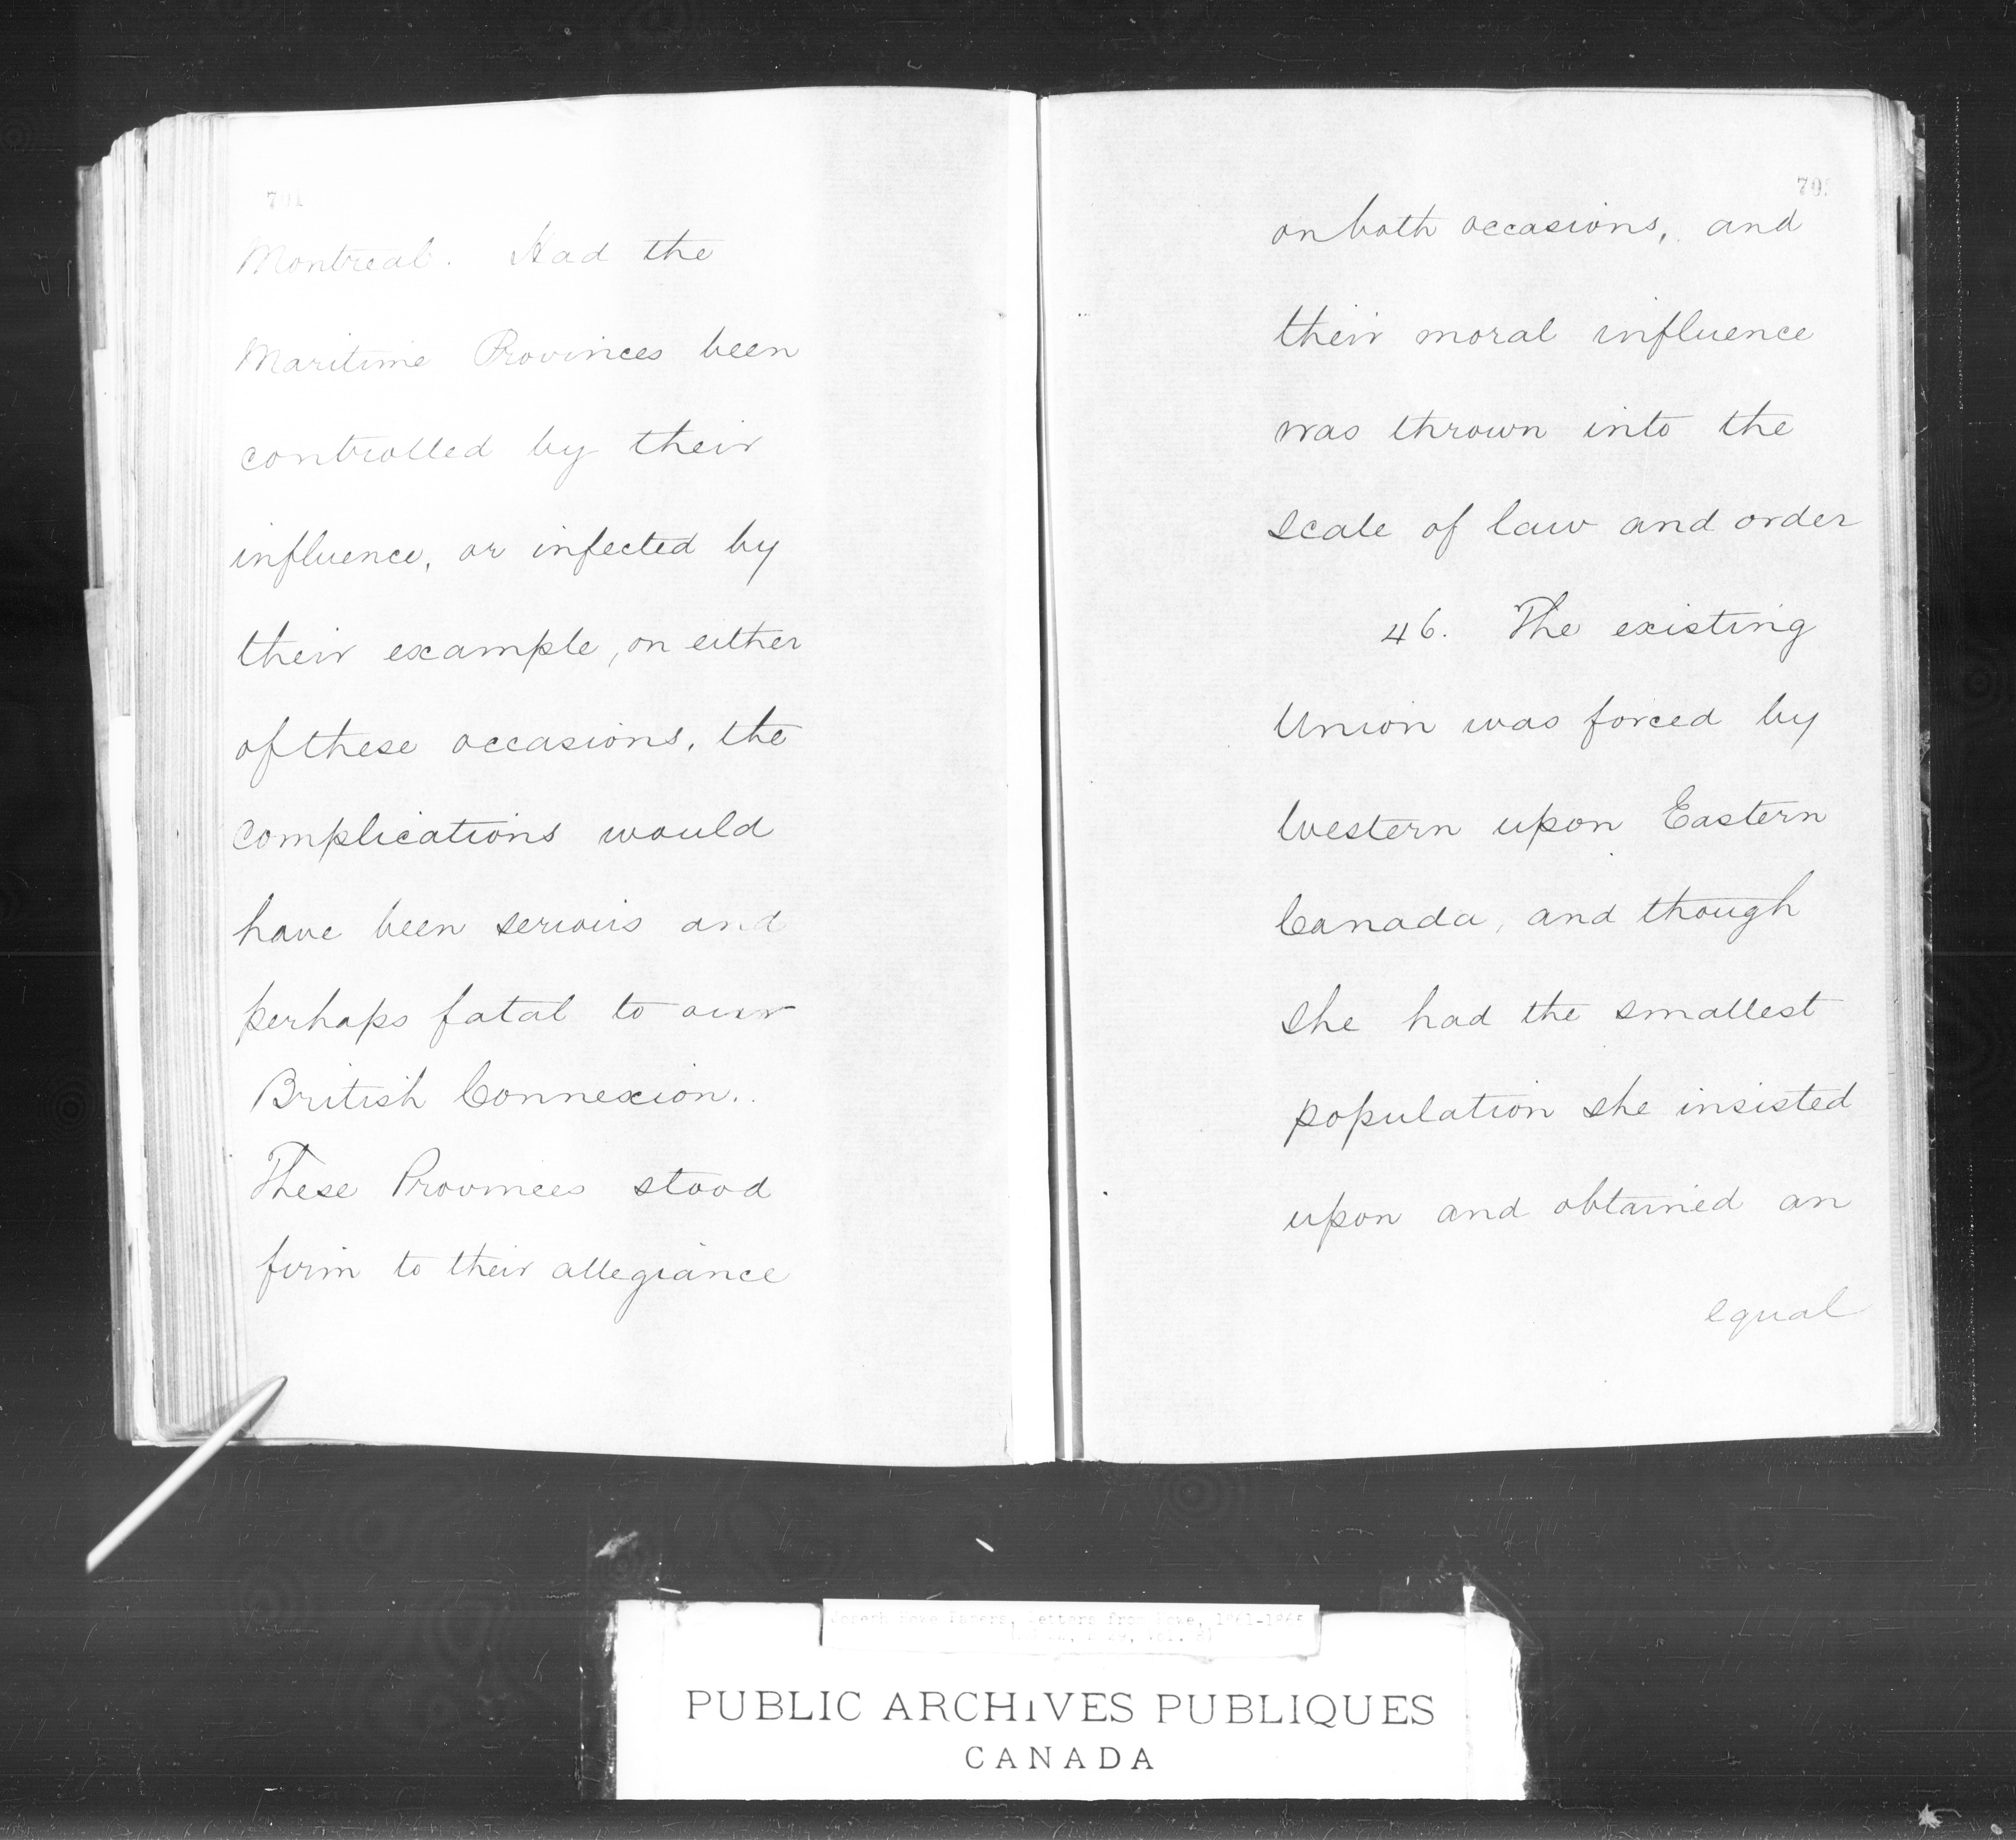 Montreal. Had the
Maritime Provinces been
controlled by their
influence, or infected by
their example, on either
of these occasions, the
complications would
have been serious and
perhaps fatal to our
British Connexion.
These Provinces stood
firm to their allegiance
on both occasions, and
their moral influence
was thrown into the
scale of law and order
46. The existing
Union was forced by
Western upon Eastern
Canada, and though
she had the smallest
population she insisted
upon and obtained an
equal
Joseph Howe Papers, Letters from Howe, 1861-1865
PUBLIC ARCHIVES PUBLIQUES
CANADA